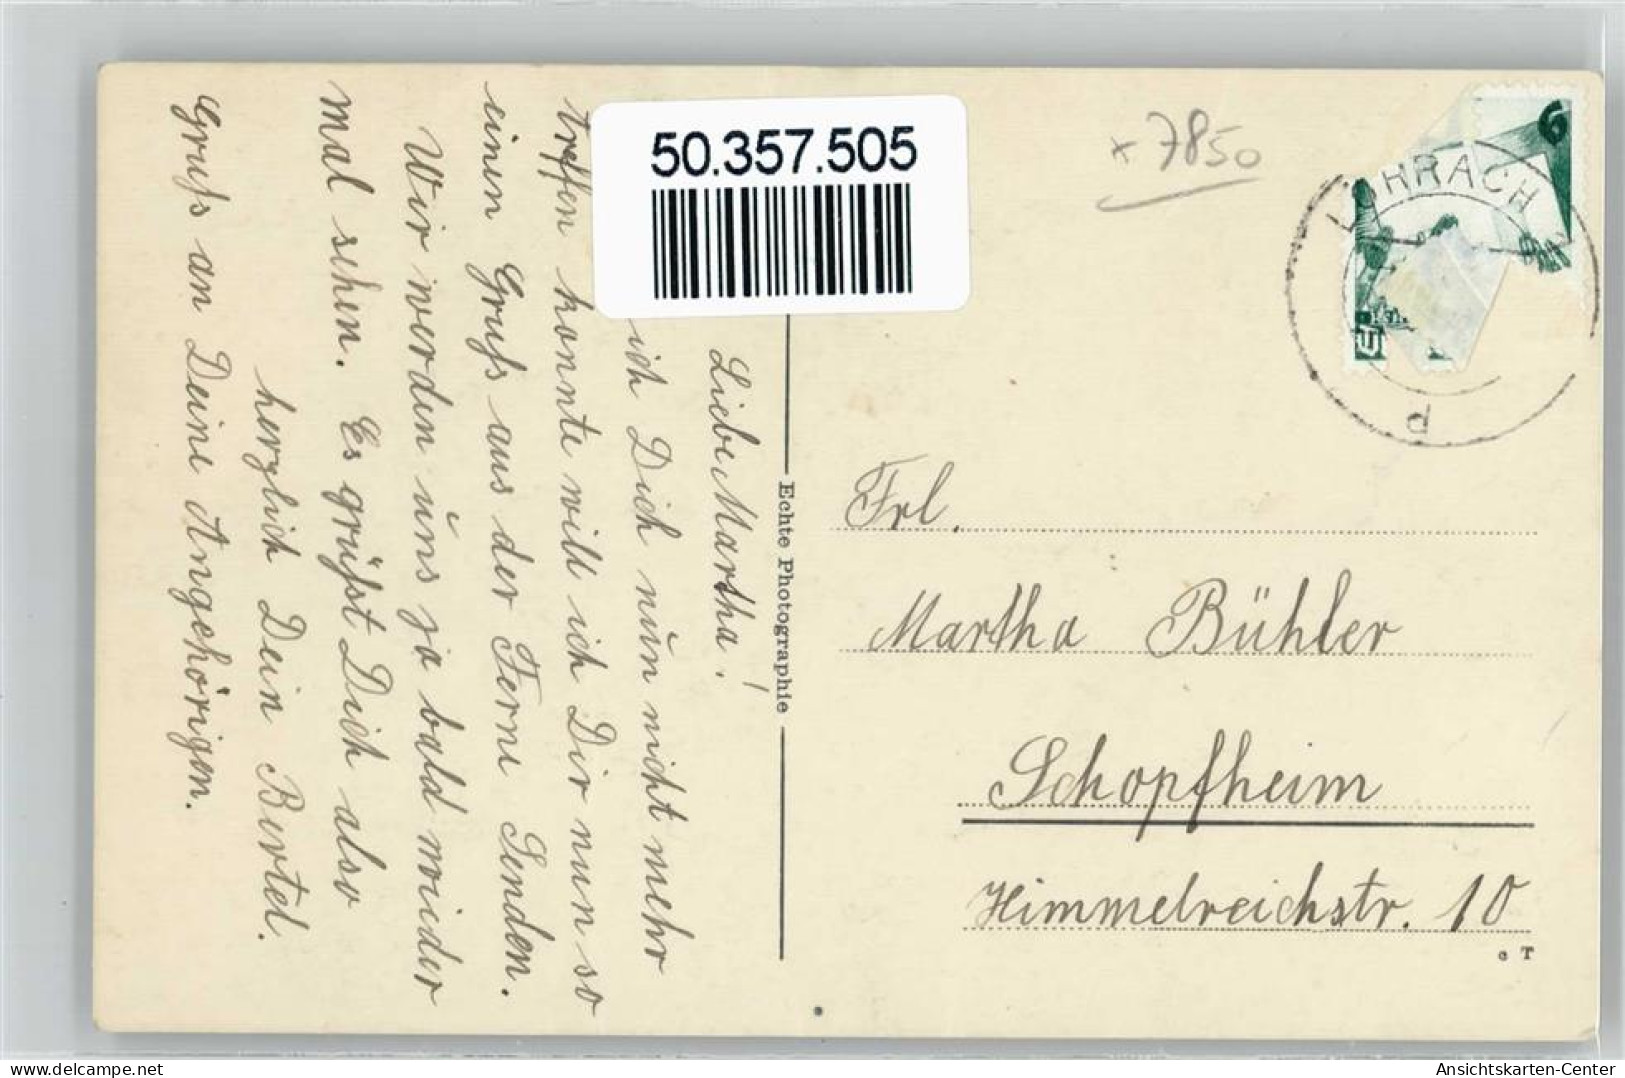 50.357.505
* 7850
LÖRRACH
d
6
Liebe Martha!
ich Dich nun nicht mehr
treffen konnte will ich Dir nun so
einen Gruß aus der Ferne Senden.
Wir werden uns ja bald wieder
mal sehen. Es grüßt Dich also
herzlich Dein Bertel.
Gruß an Deine Angehörigen.
Echte Photographie
Frl.
Martha Bühler
Schopfheim
Himmelreichstr. 10
e T
www.delcampe.net
Ansichtskarten-Center